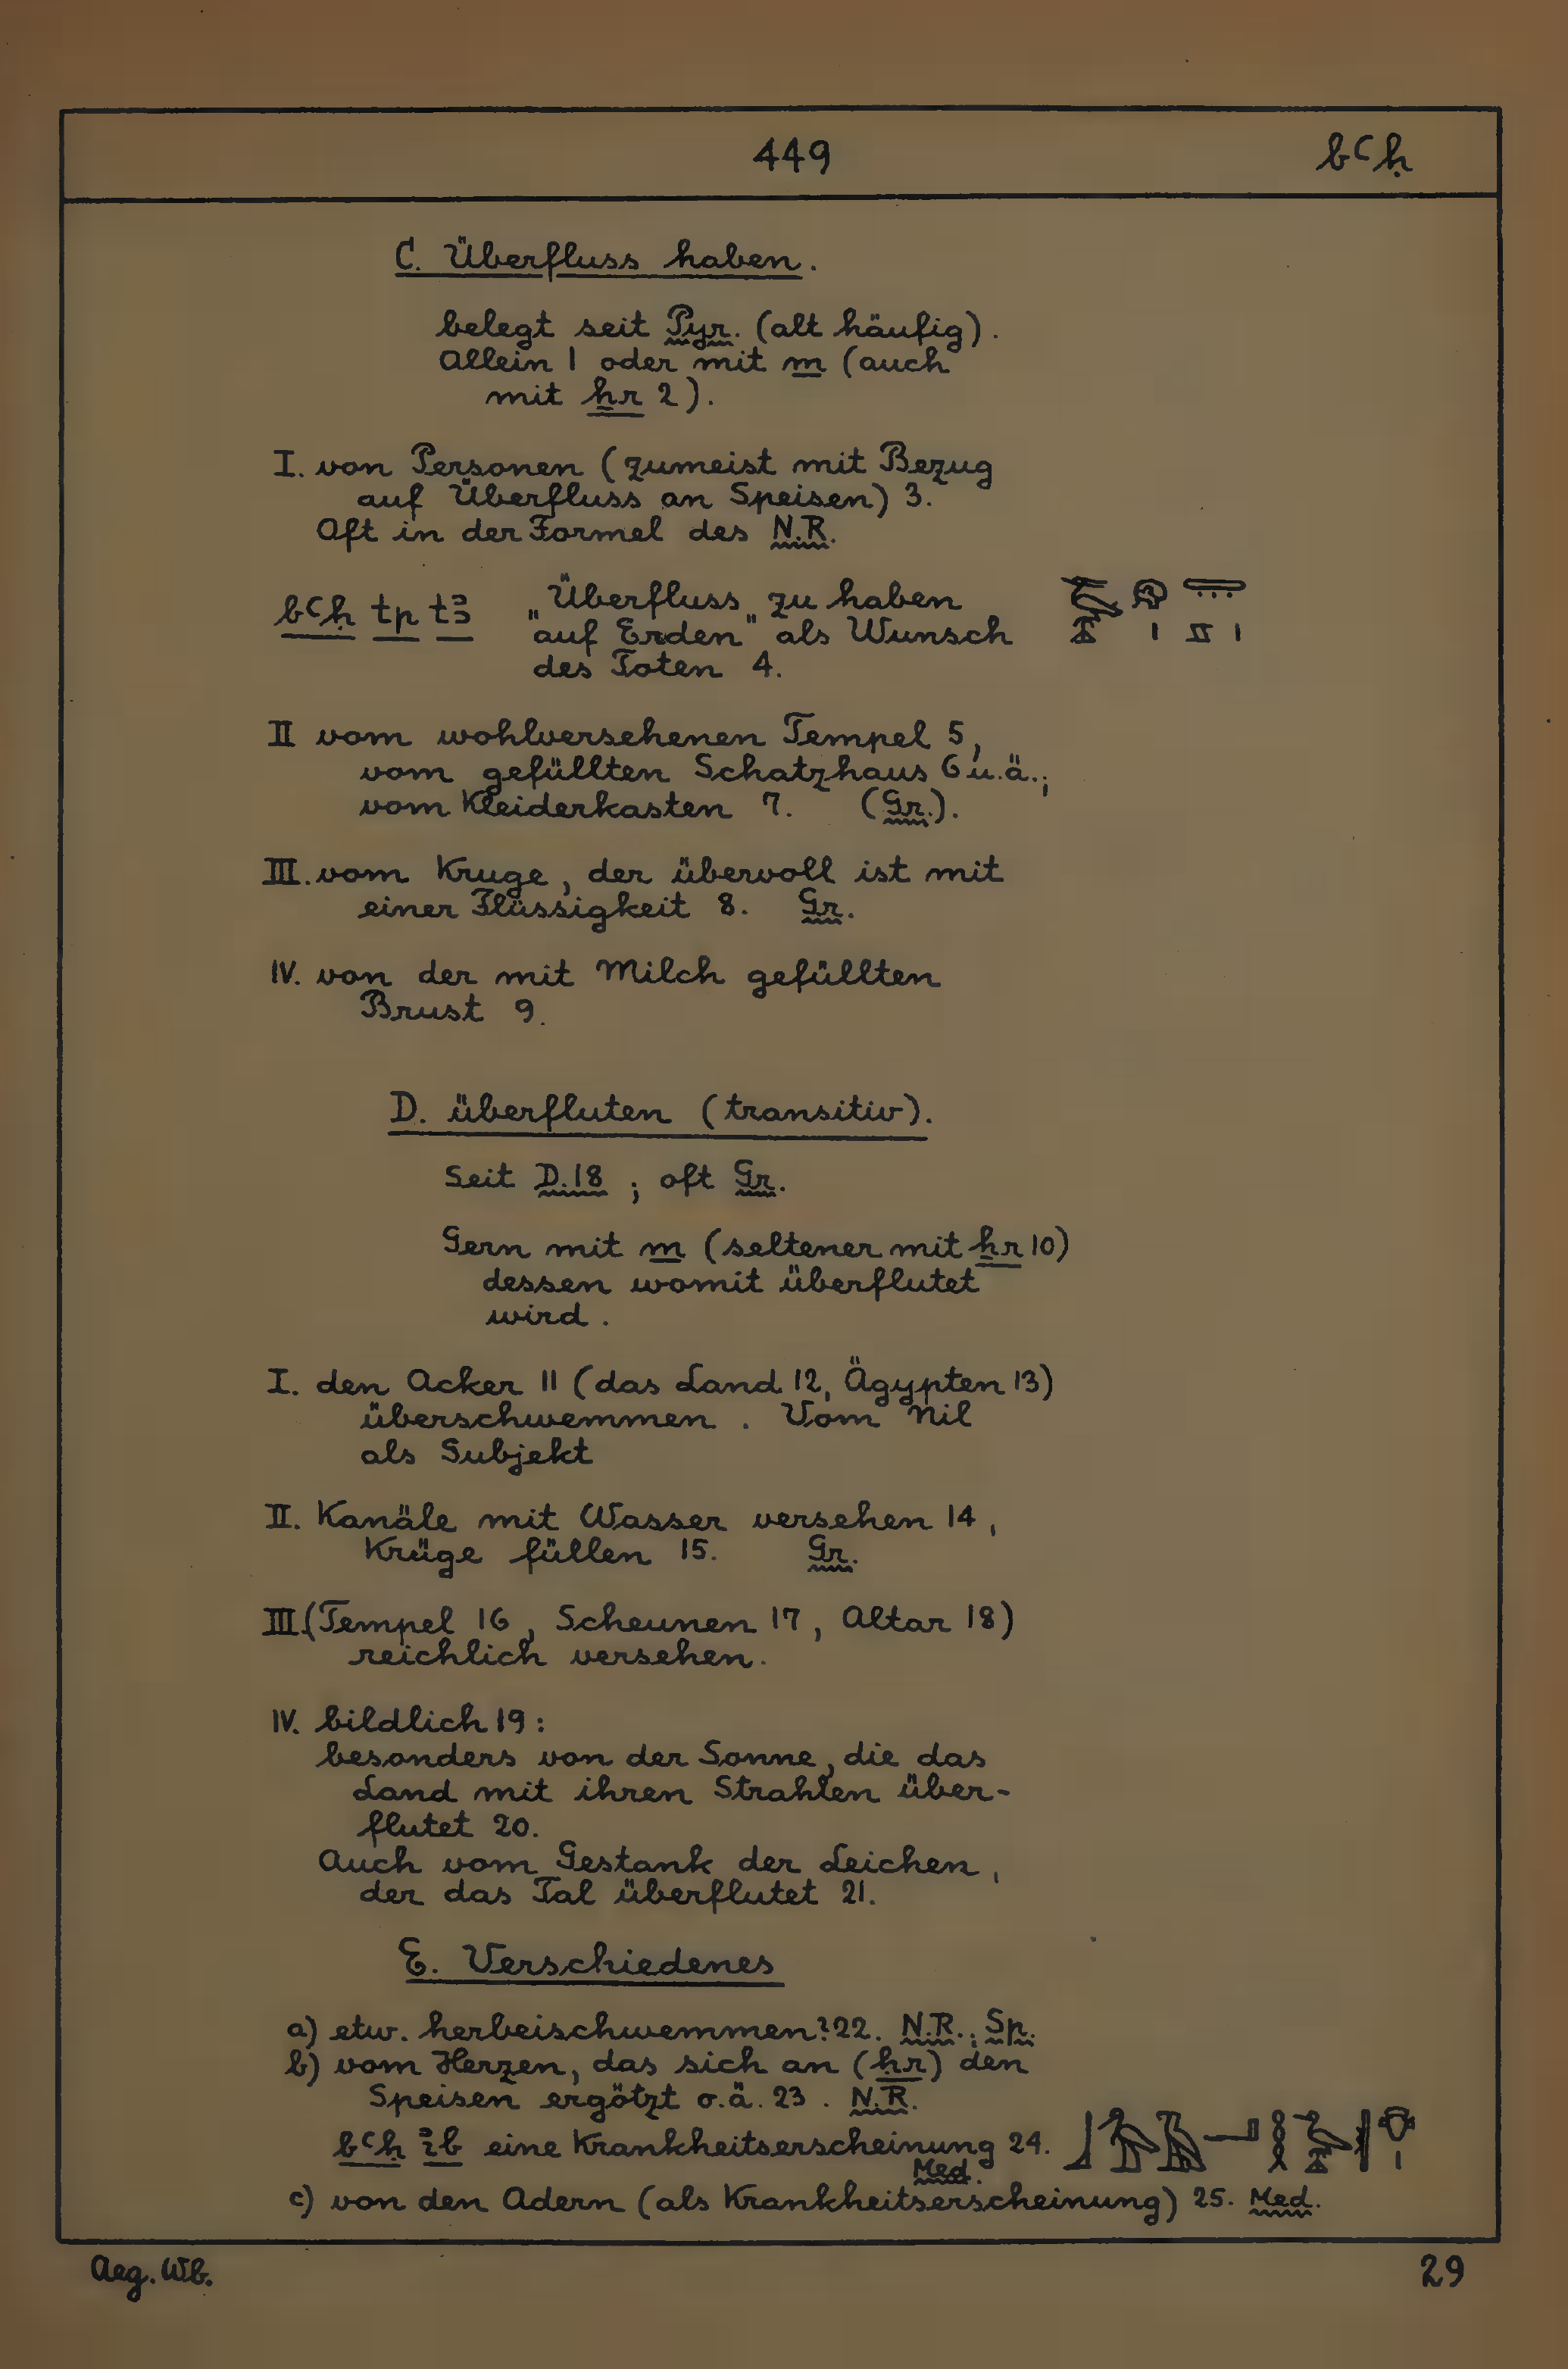 449 bꜥḥ
C. Überfluss haben.
belegt seit Pyr. (alt häufig).
Allein 1 oder mit m (auch
mit ẖr 2).
I. von Personen (zumeist mit Bezug
auf Überfluss an Speisen) 3.
Oft in der Formel des N.R.
bꜥḥ tp tꜣ „Überfluss zu haben
auf Erden" als Wunsch
des Toten 4.
II vom wohlversehenen Tempel 5,
vom gefüllten Schatzhaus 6 u.ä.;
vom Kleiderkasten 7. (Gr.).
III. vom Kruge, der übervoll ist mit
einer Flüssigkeit 8. Gr.
IV. von der mit Milch gefüllten
Brust 9.
D. überfluten (transitiv).
Seit D.18; oft Gr.
Gern mit m (seltener mit ẖr 10)
dessen womit überflutet
wird.
I. den Acker 11 (das Land 12, Ägypten 13)
überschwemmen. Vom Nil
als Subjekt
II. Kanäle mit Wasser versehen 14,
Krüge füllen 15. Gr.
III. (Tempel 16, Scheunen 17, Altar 18)
reichlich versehen.
IV. bildlich 19:
besonders von der Sonne, die das
Land mit ihren Strahlen über-
flutet 20.
Auch vom Gestank der Leichen,
der das Tal überflutet 21.
E. Verschiedenes
a) etw. herbeischwemmen? 22. N.R.; Sp.
b) vom Herzen, das sich an (ḥr) den
Speisen ergötzt o.ä. 23. N.R.
bꜥḥ ꞽb eine Krankheitserscheinung 24.
Med.
c) von den Adern (als Krankheitserscheinung) 25. Med.
Aeg. Wb. 29